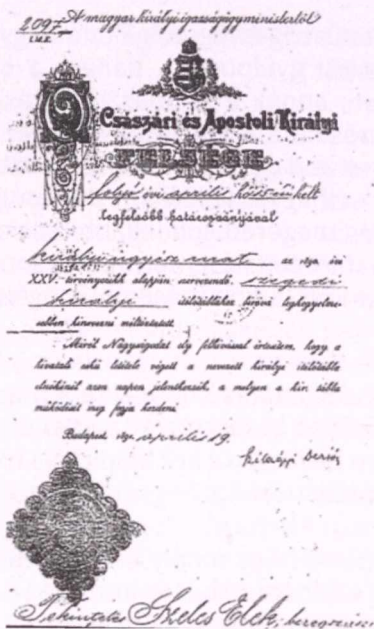 A magyar királyi igazságügyministertől
2097
I.M.E.
Ő Császári és Apostoli Királyi
FELSÉGE
folyó évi április hó kelt
legfelsőbb határozványával
az 1890. évi
XXV. törvényczikk alapján szervezendő szegedi
királyi ítélőtáblához
kinevezni méltóztatott.
Miről Nagyságodat oly felhívással értesítem, hogy a
hivatali eskü letétele végett a nevezett királyi ítélőtábla
elnökénél azon napon jelentkezzék, a melyen a kir. tábla
működését meg fogja kezdeni.
Budapest, 1891. április 19.
Szilágyi Dezső
Tekintetes Szeles Elek,